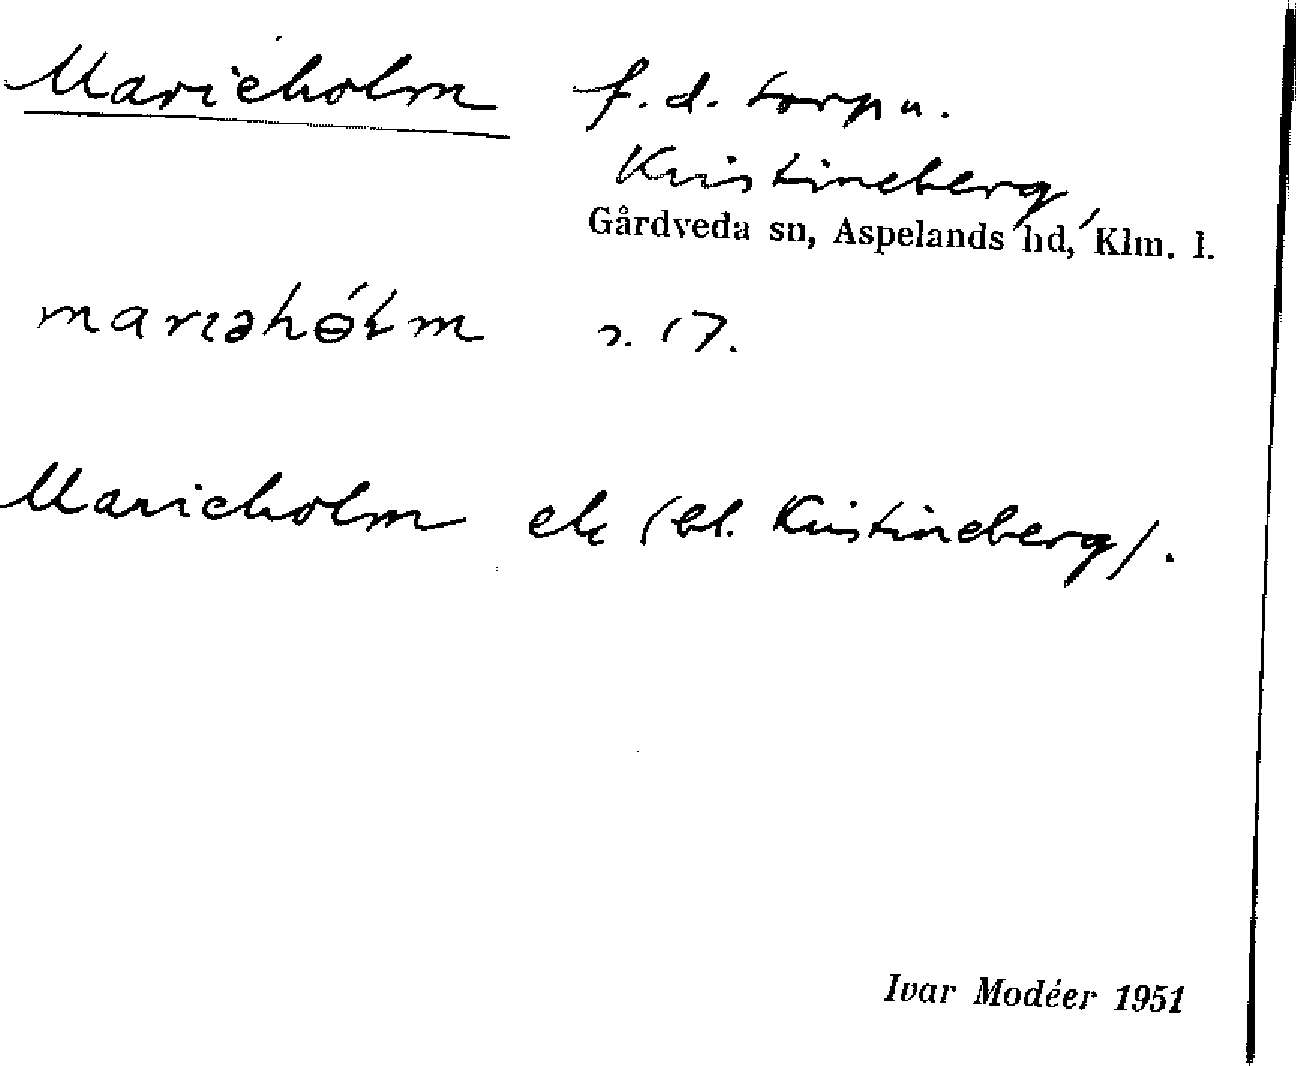 Marieholm f. d. torp u.
Kristineberg,
Gårdveda sn, Aspelands hd, Klm. l.
marıəhɵ́łm s. 17.
Marieholm ek (bl. Kristineberg).
Ivar Modéer 1951